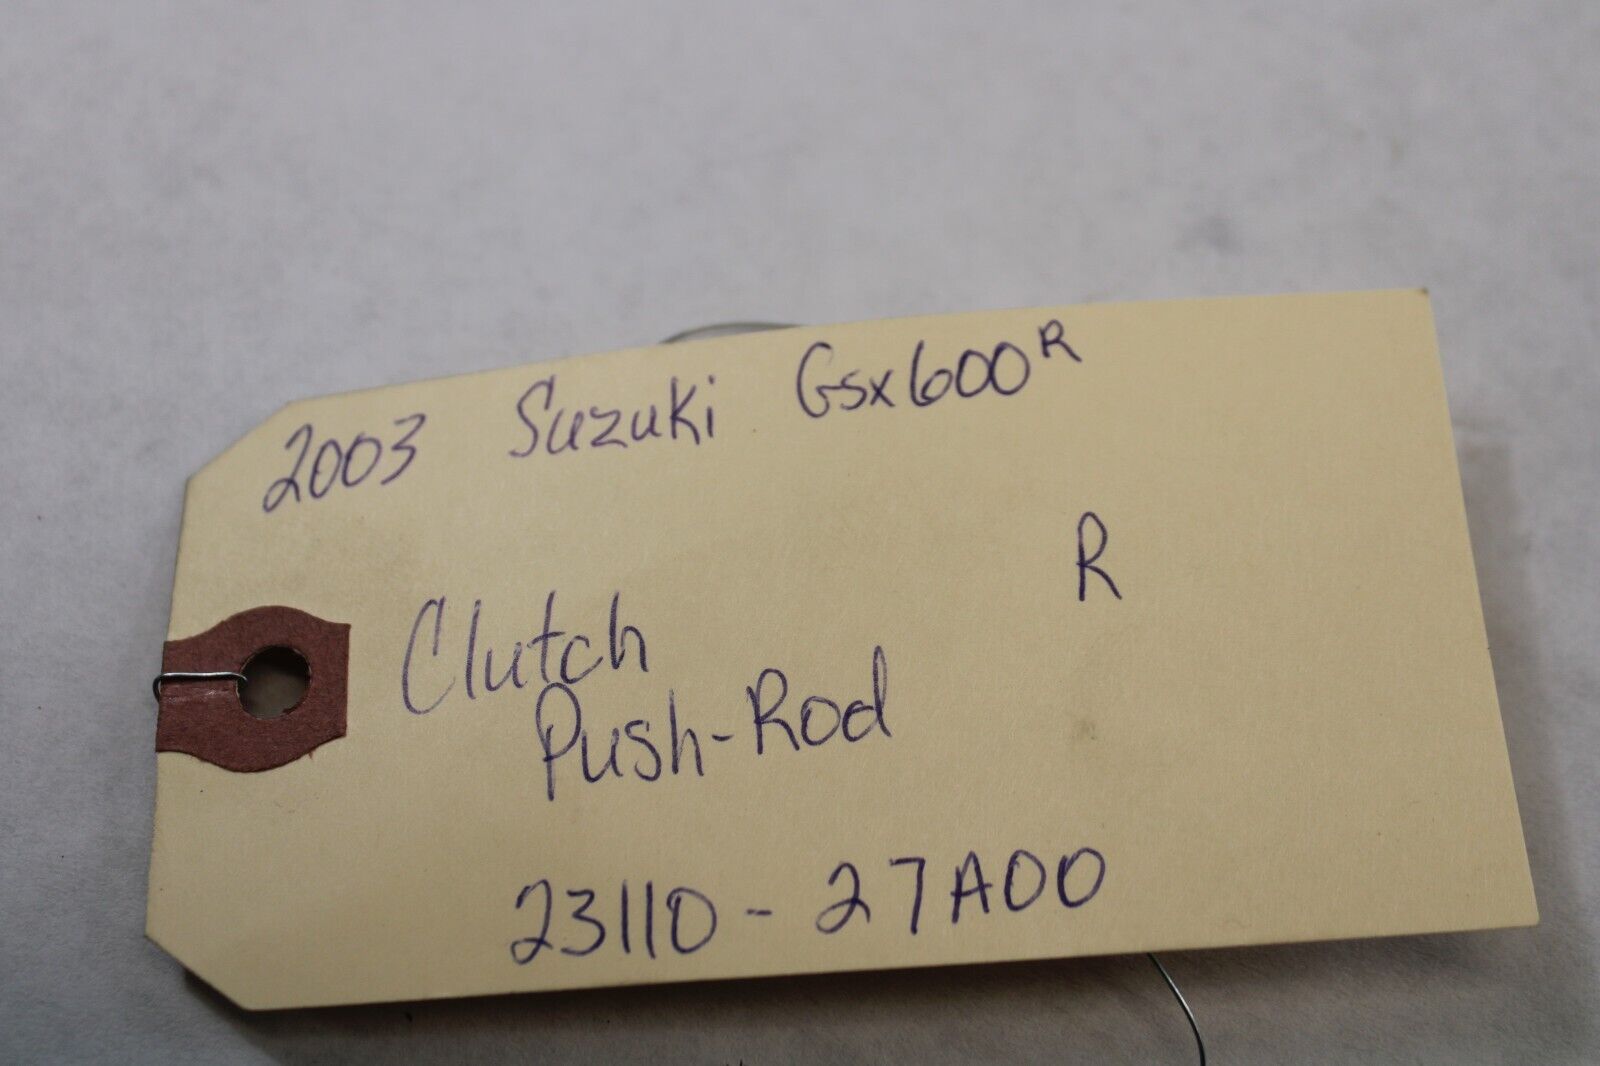 2003 Suzuki Gsx600R
R
Clutch
Push-Rod
23110-27A00